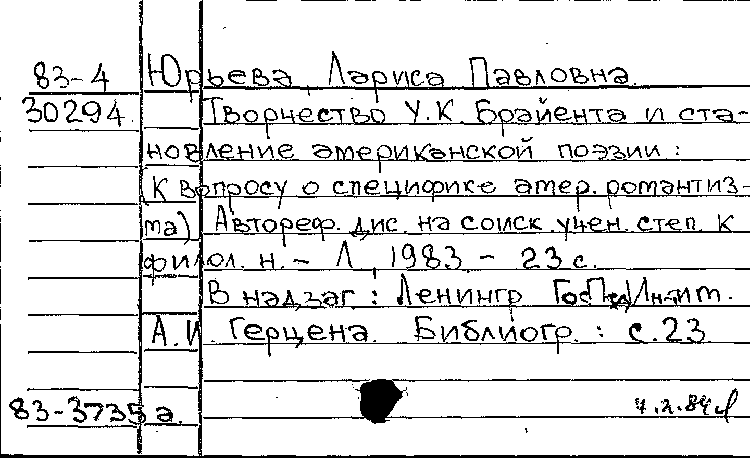 83-4 Юрьева, Лариса Павловна.
30294. Творчество У.К. Брайента и ста-
новление американской поэзии:
(К вопросу о специфике амер. романтиз-
ма) Автореф. дис. на соиск. учен. степ. к
филол. н. - Л, 1983 - 23 с.
В надзаг: Ленингр ГосПед/Ин-т им.
А.И. Герцена. Библиогр.: с.23
83-3735а.